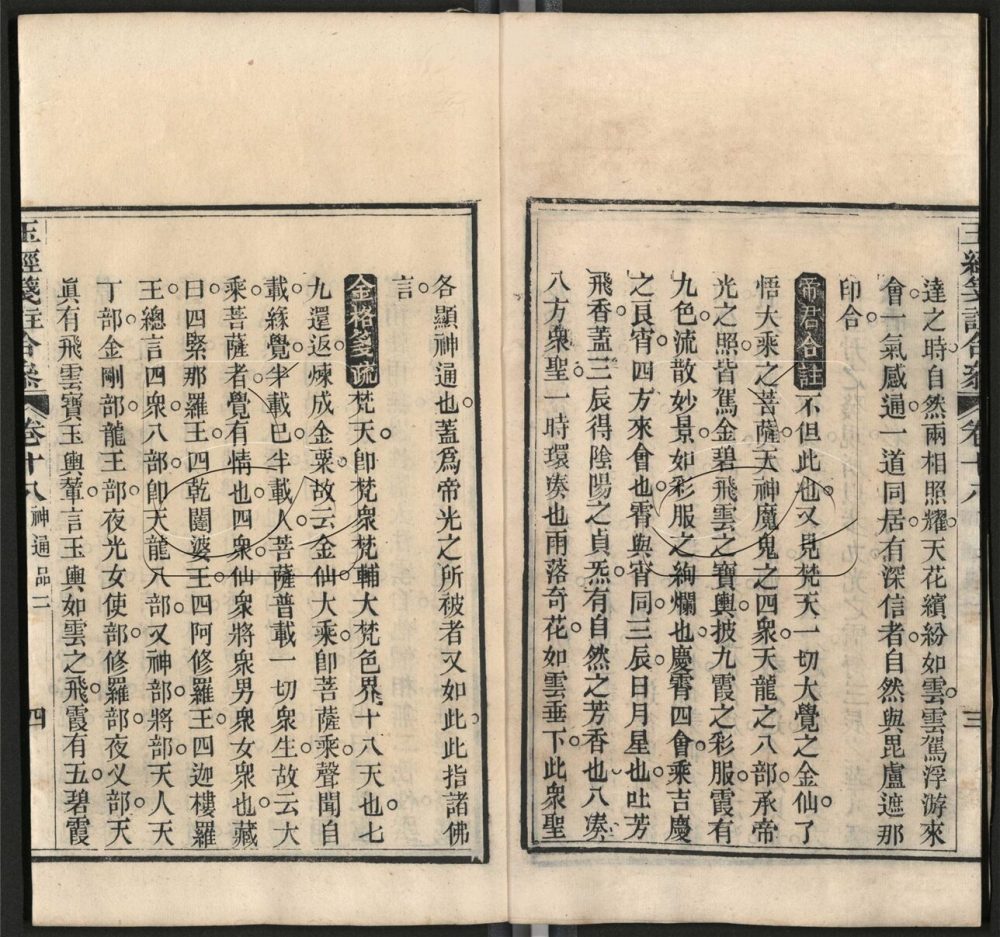 達之時自然兩相照耀天花繽紛如雲雲駕浮游來
會一氣感通一道同居有深信者自然與毘盧遮那
印合。
帝君合註不但此也又見梵天一切大覺之金仙了
悟大乘之菩薩天神魔鬼之四衆天龍之八部承帝
光之照皆駕金碧飛雲之寶輿披九霞之彩服霞有
九色流散妙景如彩服之絢爛也慶霄四會乘吉慶
之良宵四方來會也霄與宵同三辰日月星也吐芳
飛香蓋三辰得陰陽之貞炁有自然之芳香也八湊
八方衆聖一時環湊也雨落奇花如雲垂下此衆聖
三
各顯神通也蓋爲帝光之所被者又如此此指諸佛
言。
金格箋疏梵天卽梵衆梵輔大梵色界十八天也七
九還返煉成金粟故云金仙大乘卽菩薩乘聲聞自
載緣覺半載巳半載人菩薩普載一切衆生故云大
乘菩薩者覺有情也四衆仙衆將衆男衆女衆也藏
曰四緊那羅王四乾闥婆王四阿修羅王四迦樓羅
王總言四衆八部卽天龍八部又神部將部天人天
丁部金剛部龍王部夜光女使部修羅部夜义部天
眞有飛雲寶玉輿輦言玉輿如雲之飛霞有五碧霞
玉經箋註合叅 卷十八 神通品二 四